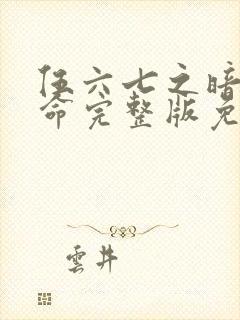 伍六七之暗
命完整版免
雲井